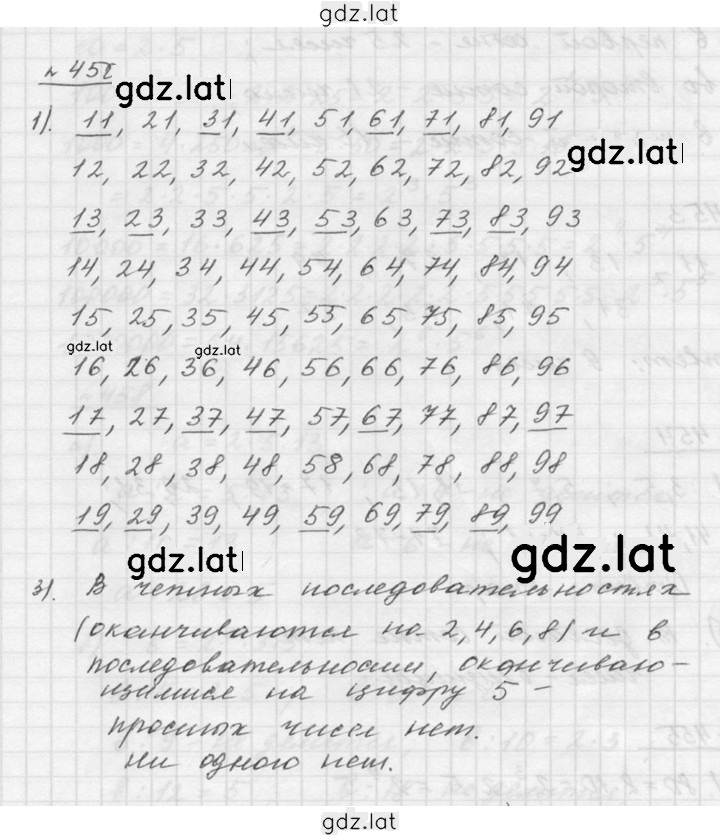 gdz.lat
№ 452
gdz.lat
1). 11, 21, 31, 41, 51, 61, 71, 81, 91
gdz.lat
12, 22, 32, 42, 52, 62, 72, 82, 92
13, 23, 33, 43, 53, 63, 73, 83, 93
14, 24, 34, 44, 54, 64, 74, 84, 94
15, 25, 35, 45, 55, 65, 75, 85, 95
gdz.lat gdz.lat
16, 26, 36, 46, 56, 66, 76, 86, 96
17, 27, 37, 47, 57, 67, 77, 87, 97
18, 28, 38, 48, 58, 68, 78, 88, 98
19, 29, 39, 49, 59, 69, 79, 89, 99
gdz.lat gdz.lat
3). В четных последовательностях
(оканчиваются на 2, 4, 6, 8) и в
последовательности, оканчиваю-
щимися на цифру 5 -
простых чисел нет.
Ни одного нет.
gdz.lat